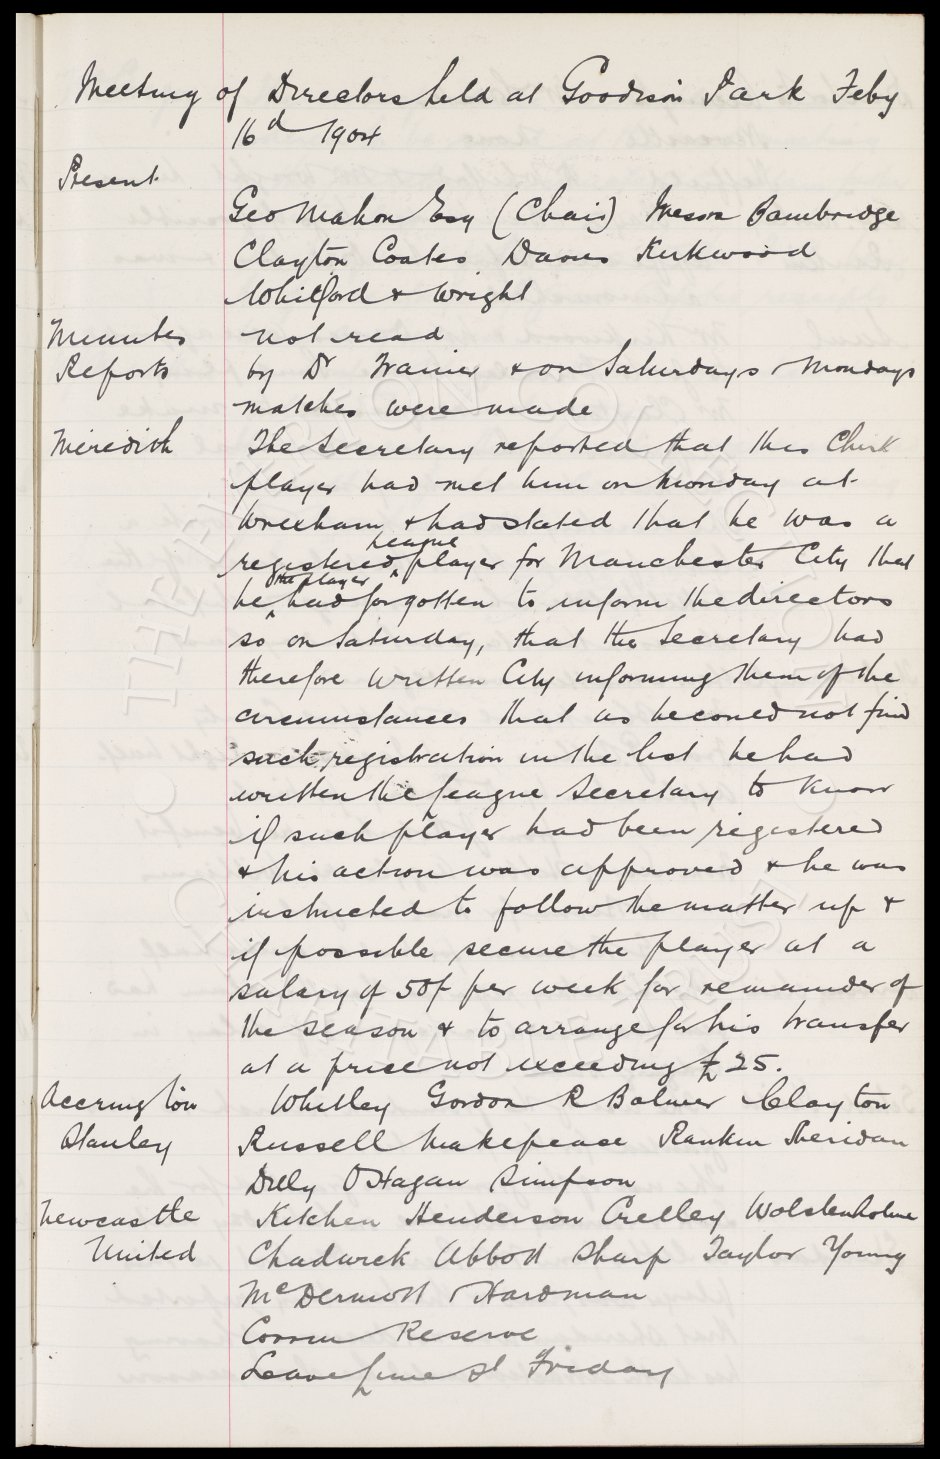 Meeting of Directors held at Goodison Park Feby
16th 1904
Present
Geo Mahon Esq (Chair) Messrs Bainbridge
Clayton Coates Davies Kirkwood
Whitford & Wright
Minutes not read
Reports by Dr Trainer & on Saturdays & Mondays
matches were made
Meredith The Secretary reported that this Chirk
player had met him on Monday at
Wrexham & had stated that he was a
registered league player for Manchester City that
he (the player) had forgotten to inform the directors
so on Saturday, that the Secretary had
therefore written City informing them of the
circumstances that as he could not find
such registration in the list he had
written the League Secretary to know
if such player had been registered
& his action was approved & he was
instructed to follow the matter up &
if possible secure the player at a
salary of 50/- per week for remainder of
the season & to arrange for his transfer
at a price not exceeding £25.
Accrington Whitley Gordon R Balmer Clayton
Stanley Russell Makepeace Rankin Sheridan
Dilly O'Hagan Simpson
Newcastle Kitchen Henderson Crelley Wolstenholme
United Chadwick Abbott Sharp Taylor Young
McDermott & Hardman
Corrin Reserve
Leave Lime St Friday